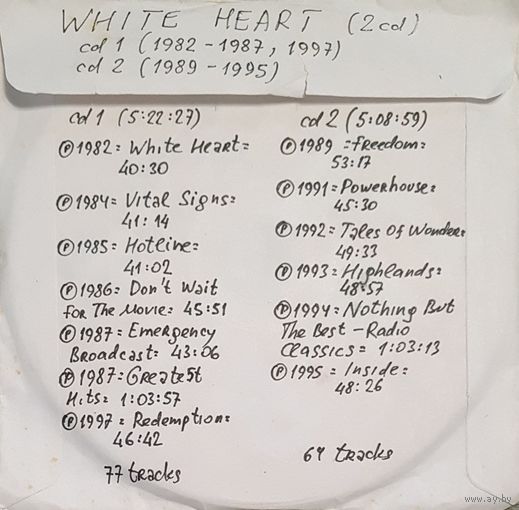 WHITE HEART (2cd)
cd 1 (1982-1987, 1997)
cd 2 (1989-1995)
cd 1 (5:22:27)
Ⓟ1982= White Heart=
40:30
Ⓟ1984= Vital Signs=
41:14
Ⓟ1985= Hotline=
41:02
Ⓟ1986= Don't Wait
for The Movie= 45:51
Ⓟ1987= Emergency
Broadcast= 43:06
Ⓟ1987=Greatest
Hits= 1:03:57
Ⓟ1997= Redemption=
46:42
77 tracks
cd 2 (5:08:59)
Ⓟ1989 =Freedom=
53:17
Ⓟ1991=Powerhouse=
45:30
Ⓟ1992= Tales Of Wonder=
49:33
Ⓟ1993= Highlands=
48:57
Ⓟ1994= Nothing But
The Best - Radio
Classics= 1:03:13
Ⓟ1995 = Inside=
48:26
tracks
www.ay.by